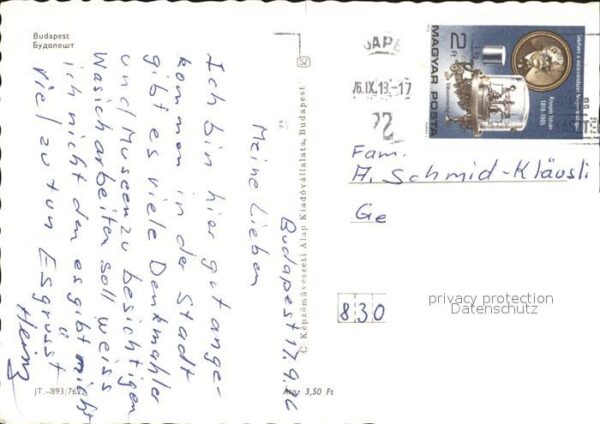 Budapest
Будапешт
Budapest 17.9.76
Meine Lieben
Ich bin hier gut ange-
kommen in der Stadt
gibt es viele Denkmahler
und Museen zu besichtigen
Was ich arbeiten soll weiss
ich nicht den es gibt nicht
viel zu tun Es grüsst
Heinz
JT.-893/762
© Képzőművészeti Alap Kiadóvállalata, Budapest
Ára: 3,50 Ft
76.IX.18.-17
72
2 Ft
MAGYAR POSTA
Kruspér István
1818-1905
Fam.
A. Schmid-Kläusli
Ge
830
privacy protection
Datenschutz